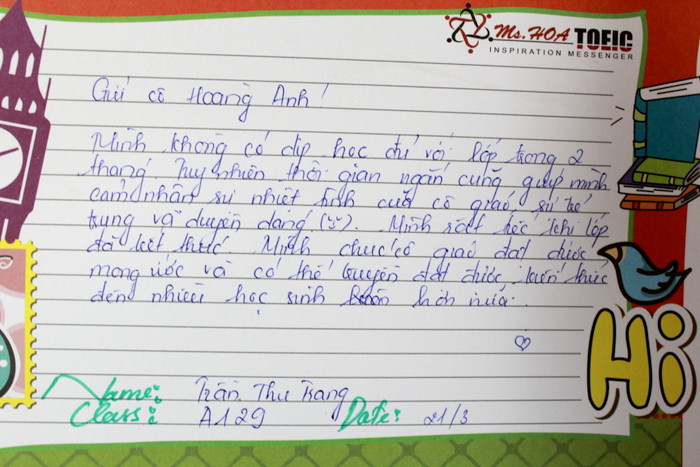 Ms. HOA TOEIC
INSPIRATION MESSENGER
Gửi cô Hoàng Anh!
Mình không có dịp học đủ với lớp trong 2
tháng. Tuy nhiên thời gian ngắn cũng giúp mình
cảm nhận sự nhiệt tình của cô giáo, sự trẻ
trung và duyên dáng (:). Mình rất tiếc khi lớp
đã kết thúc. Mình chúc cô giáo đạt được
mong ước và có thể truyền đạt được kiến thức
đến nhiều học sinh hơn nữa.
♡
Name: Trần Thu Trang
Class: A129 Date: 21/3
Hi